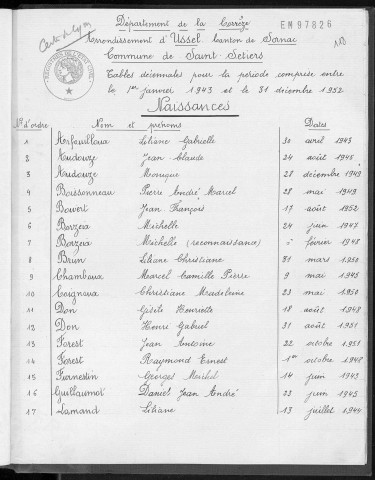 Département de la Corrèze
EN97826
Arrondissement d'Ussel Canton de Sornac
Commune de Saint-Setiers
Tables décennales pour la période comprise entre
le 1er janvier 1943 et le 31 décembre 1952
Naissances
N° d'ordre Nom et prénoms Dates
1 Arfeuilloux Liliane Gabrielle 30 avril 1943
2 Audouze Jean Claude 24 août 1945
3 Audouze Monique 28 décembre 1949
4 Boissonneau Pierre André Marcel 28 mai 1949
5 Bouert Jean François 17 août 1952
6 Borzeix Michelle 24 juin 1947
7 Borzeix Michelle (reconnaissance) février 1948
8 Brun Liliane Christiane 31 mars 1950
9 Chambaux Marcel Camille Pierre 9 mai 1945
10 Coignoux Christiane Madeleine 23 mai 1950
11 Don Gisèle Henriette 18 août 1948
12 Don Henri Gabriel 31 août 1951
13 Forest Jean Antoine 22 octobre 1951
14 Forest Raymond Ernest 1er octobre 1948
15 Furnestin Georges Michel 14 juin 1943
16 Guillaumot Daniel Jean André 23 juin 1945
17 Lamand Liliane 13 juillet 1944